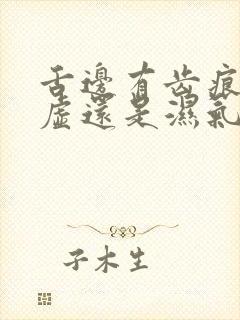 舌邊有齿痕
虛還是濕氣
子木生